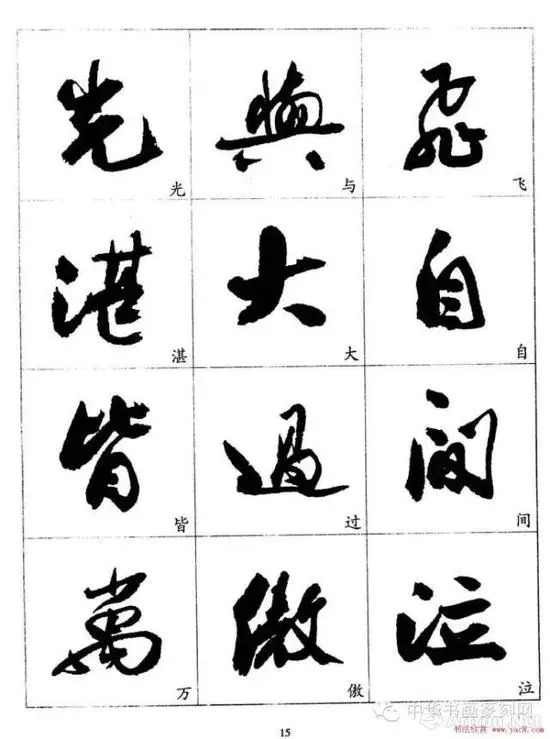 光 與 飛
光 与 飞
湛 大 自
湛 大 自
皆 過 間
皆 过 间
萬 傲 泣
万 傲 泣
中华书画篆刻网
15
书法欣赏 www.yac8.com